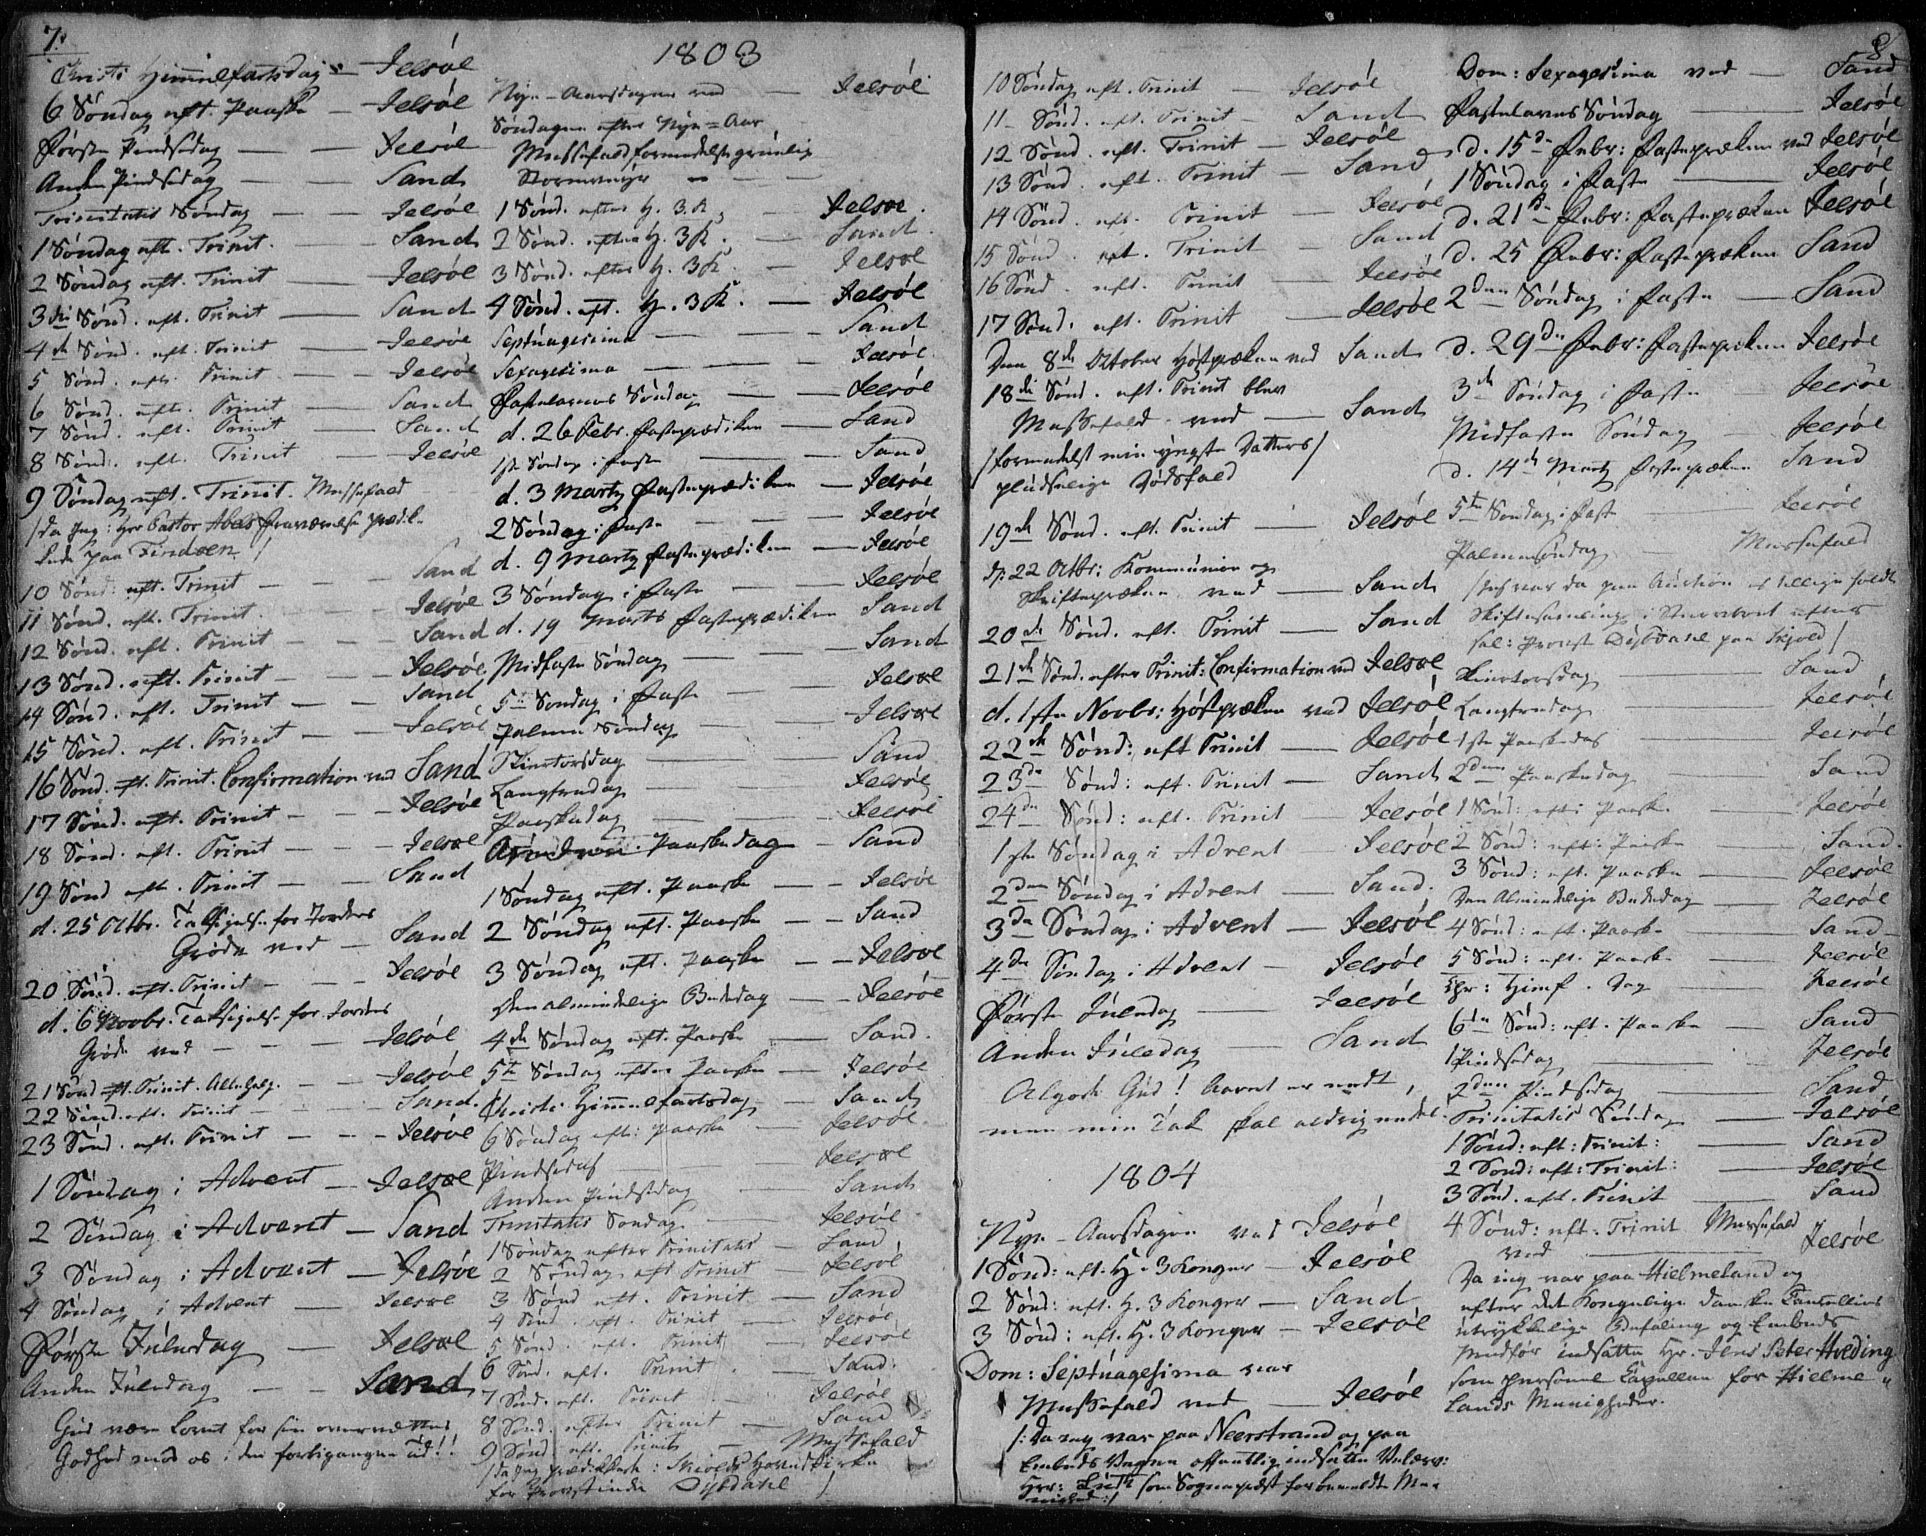 7.
Christi Himmelfartsdag — Jelsöe
6 Söndag eft. Paaske — Jelsöe
Förste Pindsedag — Jelsöe
Anden Pindsedag — Sand
Trinitatis Söndag — Jelsöe
1 Söndag eft. Trinit. — Sand
2 Söndag eft. Trinit — Jelsöe
3die Sönd. eft. Trinit — Sand
4de Sönd. eft. Trinit — Jelsöe
5 Sönd. eft. Trinit — Jelsöe
6 Sönd. eft. Trinit — Sand
7 Sönd. eft. Trinit — Sand
8 Sönd. eft. Trinit — Jelsöe
9 Söndag eft. Trinit. Messefald
/da jeg: Hr Pastor Abels Fraværelse prædik-
kede paa Findöen /
10 Sönd: eft. Trinit — Sand
11 Sönd. eft. Trinit. — Jelsöe
12 Sönd. eft. Trinit — Sand
13 Sönd. eft. Trinit — Jelsöe
14 Sönd. eft. Trinit — Sand
15 Sönd. eft. Trinit — Jelsöe
16 Sönd. eft. Trinit. Confirmation ved Sand
17 Sönd. eft. Trinit — Jelsöe
18 Sönd. eft. Trinit — Jelsoe
19 Sönd eft. Trinit — Sand
d. 25 Octbr. Taksigelse for Jordens
Gröde ved — Sand
20 Sönd. eft. Trinit — Jelsöe
d. 6 Novbr. Taksigelse for Jordens
Gröde ved — Jelsöe
21 Sönd eft. Trinit. Alle Helg. — Jelsöe
22 Sönd. eft. Trinit — Sand.
23 Sönd. eft. Trinit — Jelsöe
1 Söndag i Advent — Jelsoe
2 Söndag i Advent — Sand
3 Söndag i Advent — Jelsöe
4 Söndag i Advent — Jelsoe
Förste Juledag — Jelsoe
Anden Juledag — Sand
Gud være Lovet for sin overvættes
Godhed mod os i den forbigangne Tid!!
1803
Nye-Aarsdagen ved — Jelsöe
Söndagen efter Nye=Aar
Messefald formedelst grüelig
Stormveyr
1 Sönd. efter H. 3. K. — Jelsoe.
2 Sönd. efter H. 3 K. — Sand.
3 Sönd. efter H. 3 K. — Jelsoe
4 Sönd. eft. H. 3 K. — Jelsöe
Septuagesima — Sand
Sexagesima — Jelsöe.
Fastelavns Söndag — Jelsöe
d. 26 Febr. Fasteprædiken — Sand
1ste Söndag i Faste — Sand
d. 3 Martz Fasteprædiken — Jelsöe
2 Söndag i Faste — Jelsöe
d. 9 Martz Fasteprædiken — Jelsöe
3 Söndag i Faste — Jelsöe
d. 19 Marts Fasteprædiken — Sand
Midfaste Söndag — Sand
5te Söndag i Faste — Jelsoe
Palme Söndag — Jelsoe
Skiertorsdag — Sand
Langfredag — Jelsöe
Paaskedag — Jelsoe
Anden Paaskedag — Sand
1 Söndag eft. Paaske — Jelsöe
2 Söndag eft. Paaske — Sand
3 Söndag eft. Paaske — Jelsoe
Den almindelige Bededag — Jelsöe
4de Söndag eft. Paaske — Sand.
5te Söndag efter Paaske — Jelsöe
Christi Himmelfartsdag — Sand
6 Söndag eft: Paaske — Jelsöe.
Pindsedag — Jelsoe
Anden Pindsedag — Sand
Trinitatis Söndag — Jelsöe
1 Söndag efter Trinitatis — Sand
2 Söndag eft Trinit — Jelsöe
3 Sönd eft. Trinit — Sand
4 Sönd. eft. Trinit — Jelsöe
5 Sönd. eft. Trinit — Jelsöe
6 Sönd. eft. Trinit. — Sand.
7 Sönd. eft. Trinit — Jelsöe
8 Sönd. efter Trinit — Sand
9 Sönd. eft. Trinit — Messefald
/ da jeg prædikkede i Skiolds Hoved Kirke
for Provstinde Dybdahl /
8.
10 Söndag eft. Trinit — Jelsöe
11 Sönd. eft. Trinit — Sand
12 Sönd. eft. Trinit — Jelsöe
13 Sönd. eft. Trinit — Sand
14 Sönd. eft. Trinit — Jelsöe
15 Sönd. eft. Trinit — Sand
16 Sönd. eft. Trinit — Jelsöe
17 Sönd. eft. Trinit — Jelsöe
Den 8de October Höstpræken ved Sand
18de Sönd. eft. Trinit blev
Messefald ved — Sand
/formedelst min yngste Datters/
pludselige Dödsfald
19de Sönd. eft. Trinit — Jelsöe
d: 22 Octbr: Kommunion og
Skriftepræken ved — Sand
20de Sönd. eft. Trinit — Sand
21de Sönd. efter Trinit: Confirmation ved Jelsoe
d. 1ste Novbr: Höstpræken ved Jelsöe
22de Sönd: eft Trinit — Jelsöe
23de Sönd: eft. Trinit — Sand
24de Sönd: eft. Trinit — Jelsöe
1ste Söndag i Advent — Jelsöe
2den Söndag i Advent — Sand.
3de Söndag i Advent — Jelsöe
4de Söndag i Advent — Jelsöe
Förste Juledag — Jelsöe
Anden Juledag — Sand
Algode Gud! Aaret er endt,
men min Tak skal aldrig endes.
1804
Nye-Aarsdagen ved Jelsöe
1 Sönd: eft. H. 3 Konger — Jelsöe
2 Sönd: eft. H. 3 Konger — Sand
3 Sönd: eft. H. 3 Konger — Jelsöe
Dom: Septuagesima var
Messefald ved — Jelsöe
/: Da jeg var paa Neerstrand og paa
Embeds Vegne offentlig indsatte Velærv:
Herr: som Sognepræst for bemeldte Me-
nighed:/
Dom: Sexagesima ved — Sand
Fastelavns Söndag — Jelsöe
d. 15de Febr: Fastepræken ved Jelsöe
1 Söndag i Faste — Jelsöe
d. 21de Febr: Fastepræken Jelsöe
d. 25 Febr: Fastepræken Sand
2den Söndag i Faste — Sand
d. 29de Febr: Fastepræken Jelsöe
3de Söndag i Faste — Jelsöe
Midfaste Söndag — Jelsöe
d. 14de Martz Fastepræken Sand
5te Söndag i Fast — Jelsöe
Palmesöndag — Messefald
/Jeg var da paa Auction
Skiftesamling i Stervboet efter
sal: Provst Dybdahl paa Skjold/
Skiertorsdag — Sand
Langfredag — Jelsöe
1ste Paaskedag — Jelsöe
2den Paaskedag — Sand
1 Sönd: eft: Paaske — Jelsöe
2 Sönd: eft: Paaske — Sand.
3 Sönd: eft. Paaske — Jelsöe
Den Almindelige Bededag — Jelsöe
4 Sönd: eft. Paaske — Sand
5 Sönd: eft. Paaske — Jelsöe
Chr: Himf. Dag — Jelsöe
6te Sönd: eft. Paaske — Sand
1 Pindsedag — Jelsöe
2den Pindsedag — Sand
Trinitatis Söndag — Jelsöe
1 Sönd: eft: Trinit: — Sand
2 Sönd: eft: Trinit: — Jelsöe
3 Sönd. eft. Trinit — Sand
4 Sönd: eft. Trinit Messefald
ved — Jelsöe
Da jeg var paa Hielmeland og
efter det Kongelige danske Cancellies
udtrykkelige Befaling og Embeds
Medför indsatte Hr. Jens Peter Hveding
som personel Capellan for Hielme-
lands Menigheder.